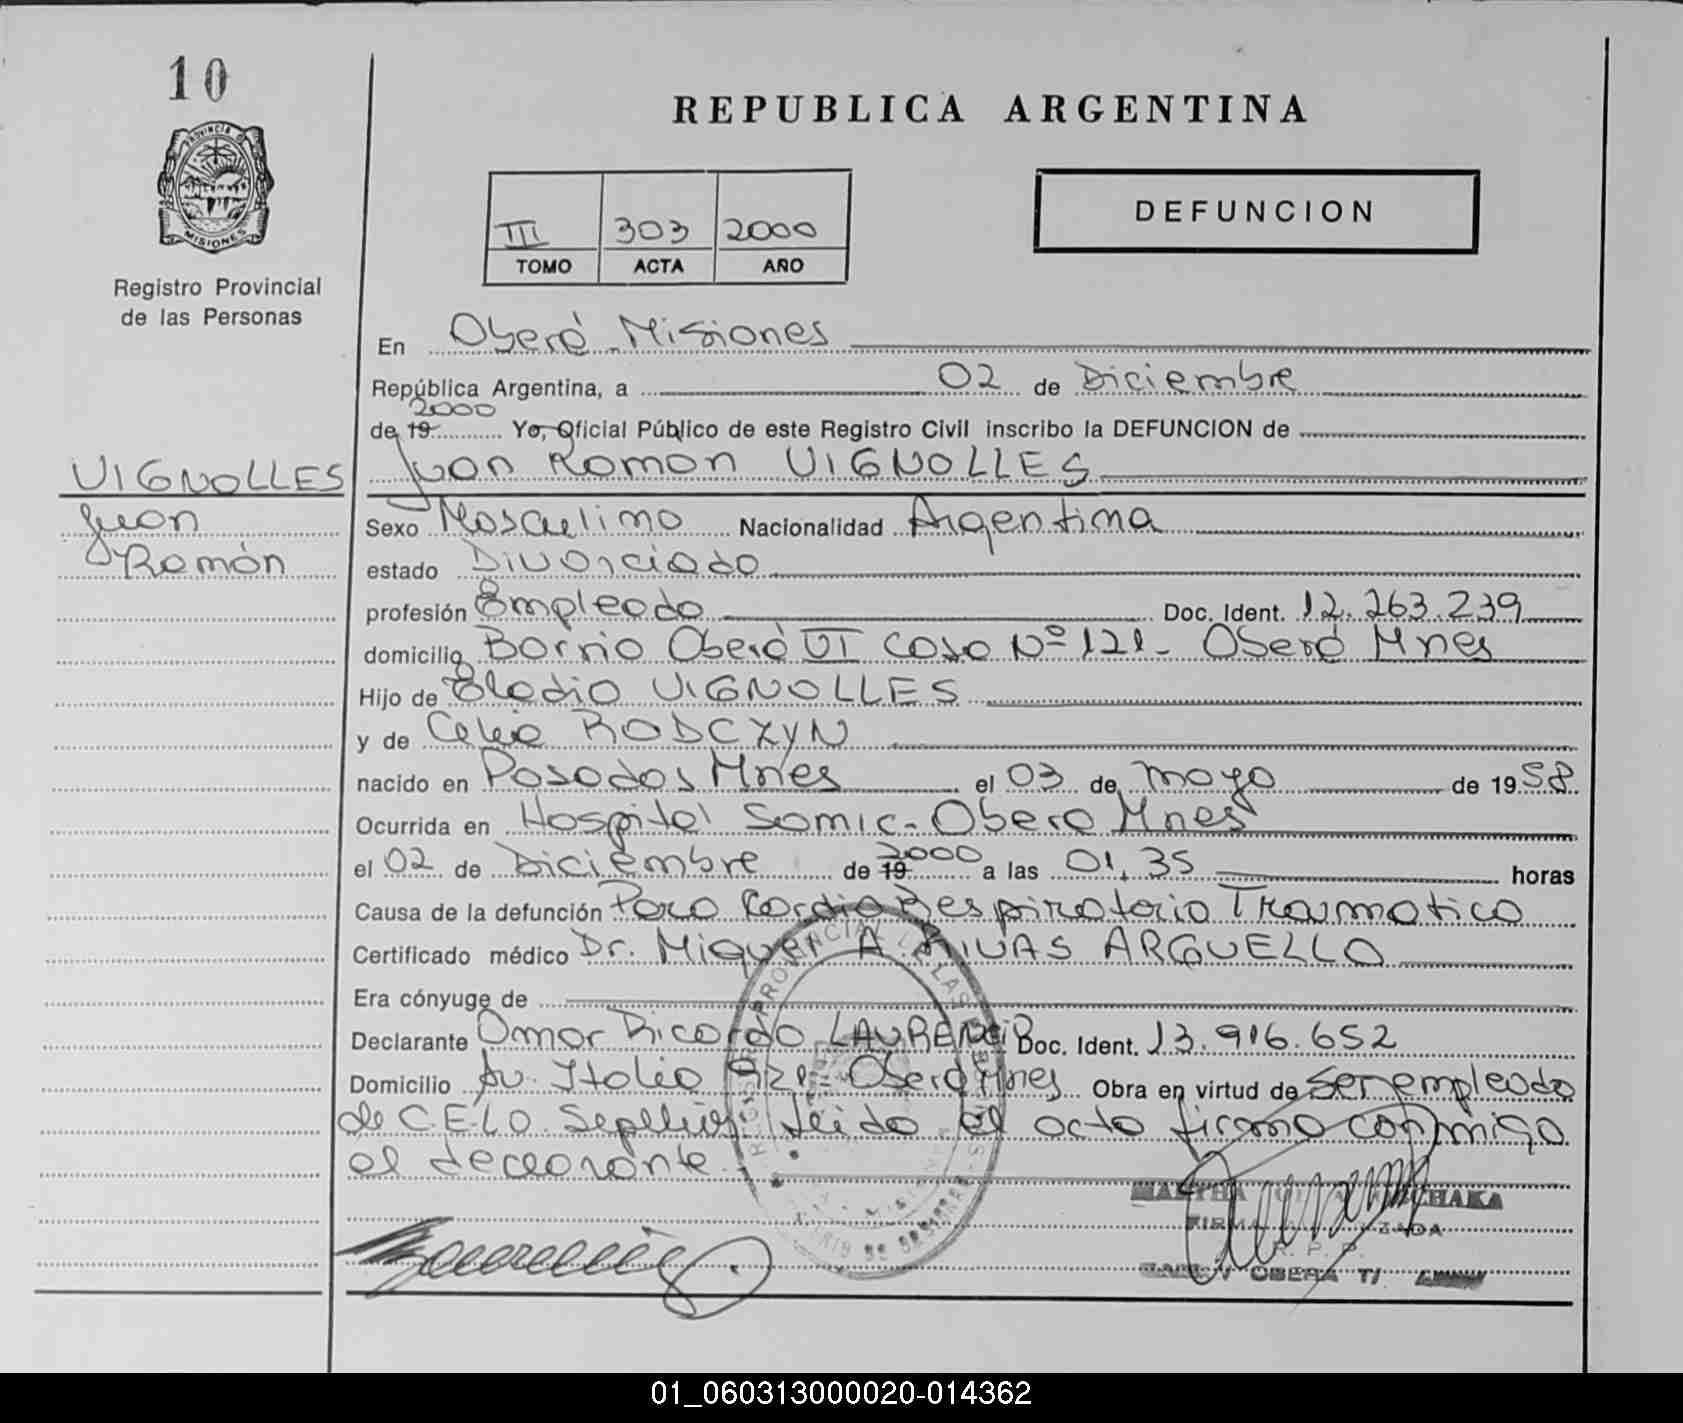 10
REPUBLICA ARGENTINA
PROVINCIA DE
MISIONES
DEFUNCION
III 303 2000
TOMO ACTA AÑO
Registro Provincial
de las Personas
En Oberá Misiones
República Argentina, a 02 de Diciembre
2000
de 19 Yo, Oficial Público de este Registro Civil inscribo la DEFUNCION de
VIGNOLLES
Juan
Ramón
Juan Ramon VIGNOLLES
Sexo Masculino Nacionalidad Argentina
estado Divorciado
profesión Empleado Doc. Ident. 12.263.239
domicilio Barrio Oberá VI Casa Nº 121 - Oberá Mnes
Hijo de Eladio VIGNOLLES
y de Celia RODCZYN
nacido en Posadas Mnes el 03 de mayo de 1958
Ocurrida en Hospital Samic - Obera Mnes
el 02 de Diciembre de 19 2000 a las 01,35 horas
Causa de la defunción Paro CardioRespiratorio Traumatico
Certificado médico Dr. Miguel A. RIVAS ARGUELLO
Era cónyuge de
Declarante Omar Ricardo Doc. Ident. 13.916.652
Domicilio Av. Italia Oberá Mnes Obra en virtud de ser empleado
de C.E.L.O. Sepelios leido el acta firma conmigo
el declarante.
OBERA
01_060313000020-014362